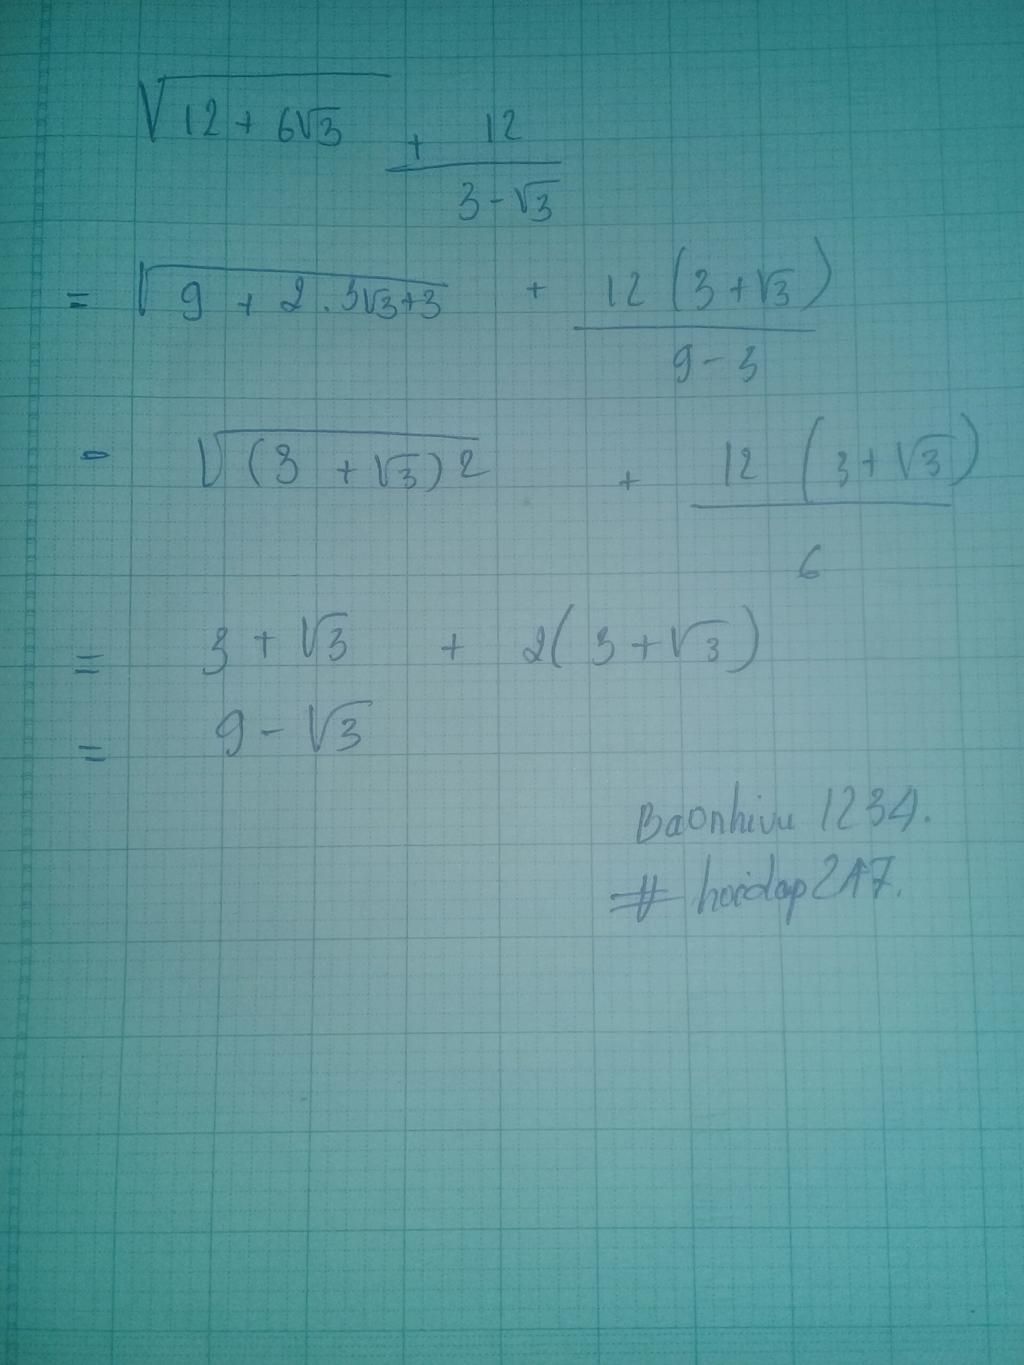 √(12 + 6√3) + 12/(3 - √3)
= √(9 + 2 . 3√3 + 3) + 12 (3 + √3)/(9 - 3)
= √((3 + √3)2) + 12 (3 + √3)/6
= 3 + √3 + 2( 3 + √3)
= 9 - √3
Baonhivu 1234.
# hoidap247.